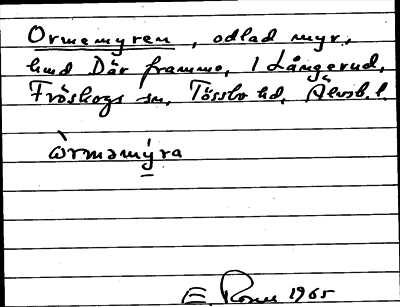 Ormemyren, odlad myr,
hmd Där framme, 1 Långerud,
Fröskogs sn, Tössbo hd, Älvsb. l.
òrmǝmýra
E. Rosell 1965